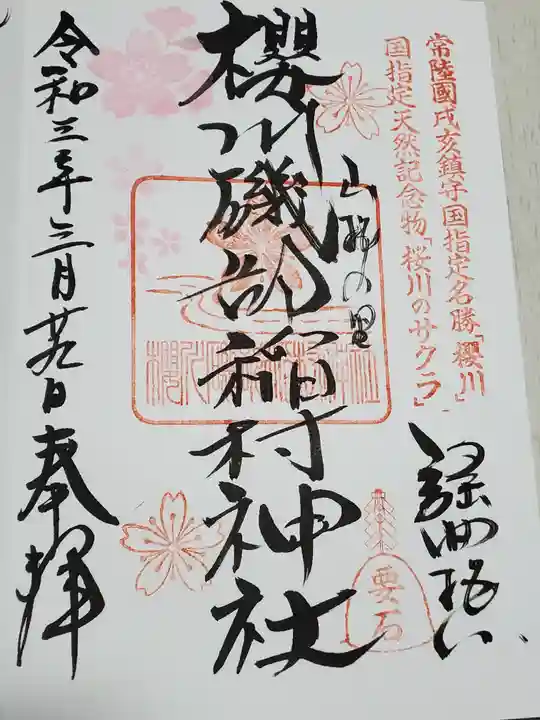 常陸國戌亥鎮守国指定名勝「櫻川」
国指定天然記念物「桜川のサクラ」
謡曲桜川
山桜の里
櫻川磯部稲村神社
要石
令和三年三月廿九日奉拝